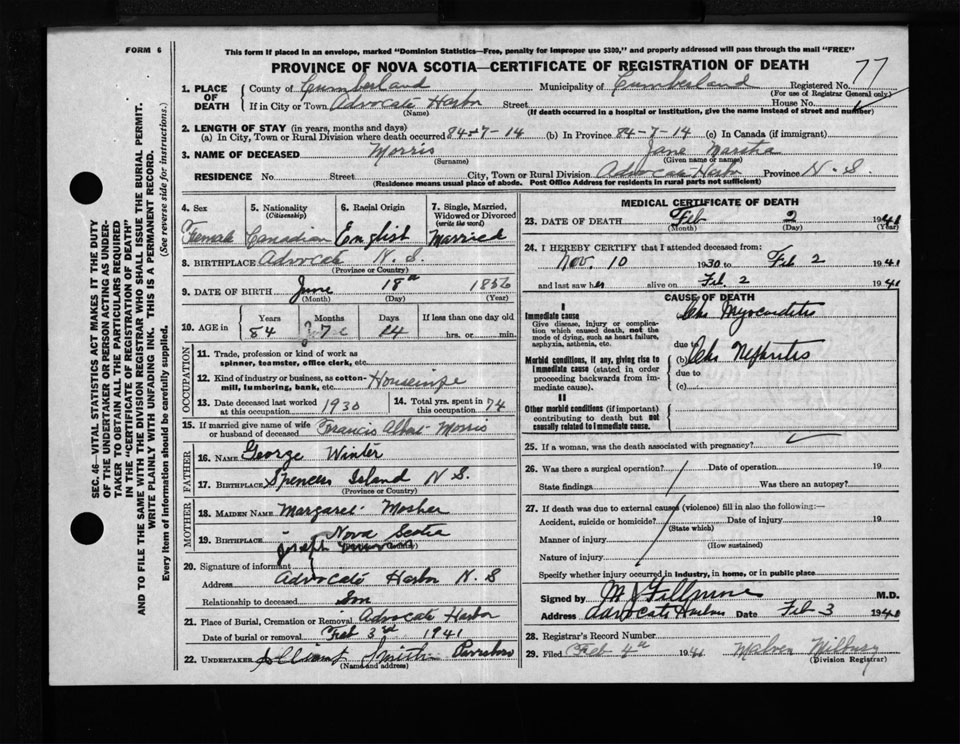 FORM 6
This form if placed in an envelope, marked "Dominion Statistics—Free, penalty for improper use $300," and properly addressed will pass through the mail "FREE"
PROVINCE OF NOVA SCOTIA—CERTIFICATE OF REGISTRATION OF DEATH
1. PLACE OF DEATH County of Cumberland Municipality of Cumberland Registered No. 77
(For use of Registrar General only.)
If in City or Town Advocate Harbor Street House No.
(Name) (If death occurred in a hospital or institution, give the name instead of street and number)
2. LENGTH OF STAY (in years, months and days)
(a) In City, Town or Rural Division where death occurred 84-7-14 (b) In Province 84-7-14 (c) In Canada (if immigrant)
3. NAME OF DECEASED Morris Jane Marsha
(Surname) (Given name or names)
RESIDENCE No. Street City, Town or Rural Division Advocate Harbor Province N.S.
(Residence means usual place of abode. Post Office Address for residents in rural parts not sufficient)
SEC. 46—VITAL STATISTICS ACT MAKES IT THE DUTY OF THE UNDERTAKER OR PERSON ACTING AS UNDERTAKER TO OBTAIN ALL THE PARTICULARS REQUIRED IN THE "CERTIFICATE OF REGISTRATION OF DEATH" AND TO FILE THE SAME WITH THE DIVISION REGISTRAR WHO SHALL ISSUE THE BURIAL PERMIT.
WRITE PLAINLY WITH UNFADING INK. THIS IS A PERMANENT RECORD.
Every item of information should be carefully supplied. (See reverse side for instructions.)
4. Sex 5. Nationality (Citizenship) 6. Racial Origin 7. Single, Married, Widowed or Divorced (write the word)
Female Canadian English Married
8. BIRTHPLACE Advocate N.S.
(Province or Country)
9. DATE OF BIRTH June 18th 1856
(Month) (Day) (Year)
10. AGE in Years Months Days If less than one day old
84 7 14 hrs. or min.
OCCUPATION
11. Trade, profession or kind of work as spinner, teamster, office clerk, etc.
12. Kind of industry or business, as cotton-mill, lumbering, bank, etc. Housewife
13. Date deceased last worked at this occupation 1930 14. Total yrs. spent in this occupation 74
15. If married give name of wife or husband of deceased Francis Albert Morris
FATHER
16. NAME George Winter
17. BIRTHPLACE Spencers Island N S.
(Province or Country)
MOTHER
18. MAIDEN NAME Margaret Mosher
19. BIRTHPLACE Nova Scotia
20. Signature of informant Joseph
Address Advocate Harbor N.S
Relationship to deceased Son
21. Place of Burial, Cremation or Removal Advocate Harbor
Date of burial or removal Feb 3rd 1941
22. UNDERTAKER Smith Parrsboro
(Name and address)
MEDICAL CERTIFICATE OF DEATH
23. DATE OF DEATH Feb 2 1941
(Month) (Day) (Year)
24. I HEREBY CERTIFY that I attended deceased from:
Nov. 10 1930 to Feb 2 1941
and last saw her alive on Feb. 2 1941
CAUSE OF DEATH
I
Immediate cause
Give disease, injury or complication which caused death, not the mode of dying, such as heart failure, asphyxia, asthenia, etc.
Chr Myocarditis
due to
Morbid conditions, if any, giving rise to immediate cause (stated in order proceeding backwards from immediate cause).
(b) Chr Nephritis
due to
(c)
II
Other morbid conditions (if important) contributing to death but not causally related to immediate cause.
25. If a woman, was the death associated with pregnancy?
26. Was there a surgical operation? Date of operation 19
State findings Was there an autopsy?
27. If death was due to external causes (violence) fill in also the following:—
Accident, suicide or homicide? Date of injury 19
(State which)
Manner of injury
(How sustained)
Nature of injury
Specify whether injury occurred in industry, in home, or in public place
Signed by M J Fillmore M.D.
Address Advocate Harbor Date Feb 3 1941
28. Registrar's Record Number
29. Filed Feb 4th 1941 Milbury
(Division Registrar)